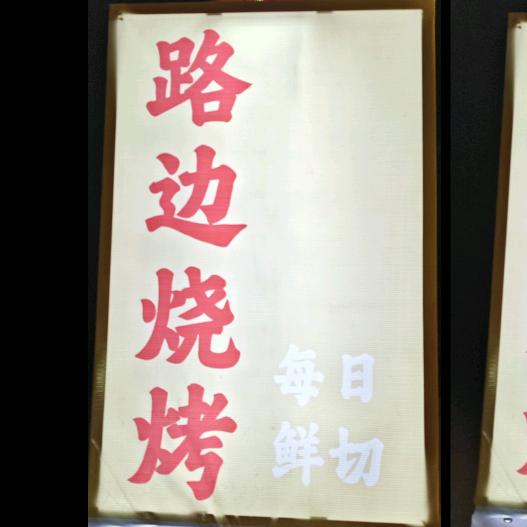 路边烧烤
每日
鲜切